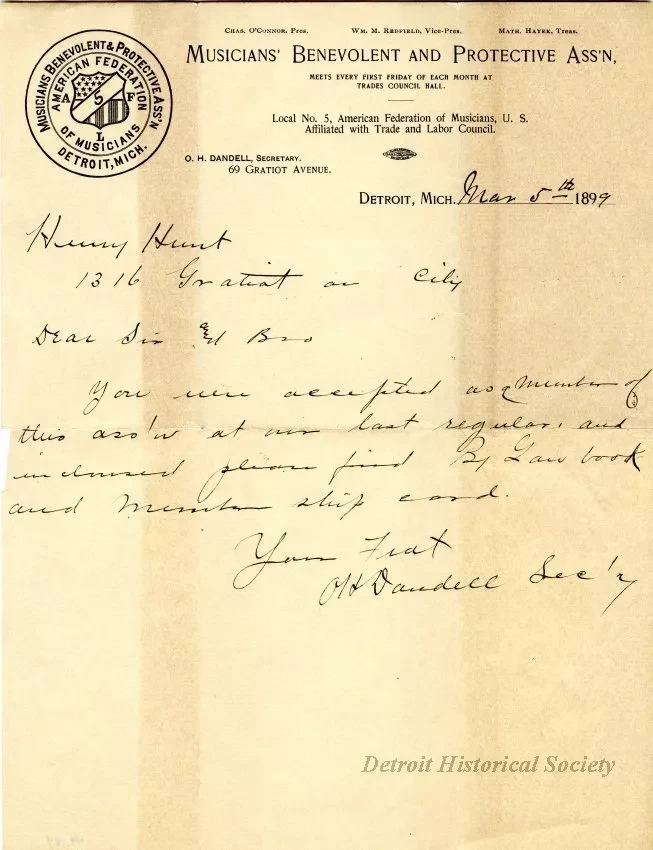 Chas. O'Connor, Pres. Wm. M. Redfield, Vice-Pres. Math. Hayek, Treas.
Musicians' Benevolent and Protective Ass'n,
MEETS EVERY FIRST FRIDAY OF EACH MONTH AT
TRADES COUNCIL HALL.
Local No. 5, American Federation of Musicians, U. S.
Affiliated with Trade and Labor Council.
MUSICIANS BENEVOLENT & PROTECTIVE ASS'N
AMERICAN FEDERATION
A 5 F
L
OF MUSICIANS
DETROIT, MICH.
O. H. DANDELL, Secretary.
69 Gratiot Avenue.
Detroit, Mich. Mar 5th 1899
Henry Hunt
1316 Gratiot av City
Dear Sir and Bro
You were accepted as a Member of
this ass'n at our last regular, and
inclosed please find By Law book
and Member ship card.
Your Frat
OH Dandell Sec'y
Detroit Historical Society